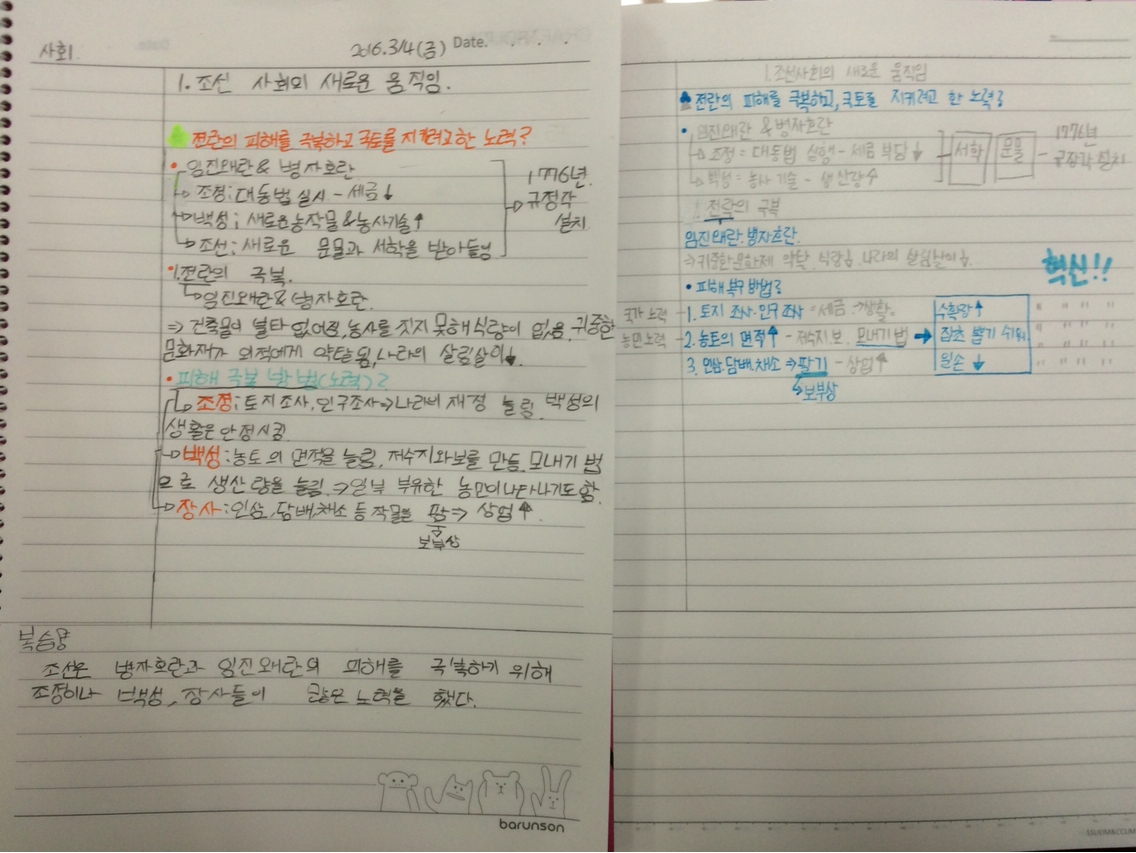 사회.
2016.3/4(금) Date.
1. 조선 사회의 새로운 움직임.
전란의 피해를 극복하고 국토를 지키려고 한 노력?
• 임진왜란 & 병자호란
→ 조정: 대동법 실시 - 세금↓
→ 백성; 새로운 농작물&농사기술↑
→ 조선: 새로운 문물과 서학을 받아들임
1776년
→ 규정각
설치
• 1. 전란의 극복
→ 임진왜란&병자호란
⇒ 건축물이 불타 없어짐, 농사를 짓지 못해 식량이 없음. 귀중한
문화재가 외적에게 약탈됨, 나라의 살림살이↓
• 피해 극복 방법(노력)?
→ 조정: 토지조사, 인구조사⇒나라의 재정 늘림, 백성의
생활은 안정시킴
→ 백성: 농토의 면적을 늘림, 저수지와 보를 만듬. 모내기 법
으로 생산량을 늘림. ⇒ 일부 부유한 농민이 나타나기도 함.
→ 장사: 인삼, 담배, 채소 등 작물을 팜⇒ 상업↑.
보부상
조선은 병자호란과 임진왜란의 피해를 극복하기 위해
조정이나 백성, 장사들이 많은 노력을 했다.
barunson
1. 조선사회의 새로운 움직임
전란의 피해를 극복하고, 국토를 지키려고 한 노력?
• 임진왜란 & 병자호란
→ 조정 = 대동법 실행 - 세금 부담↓
→ 백성 = 농사 기술 - 생산량↑
서학 문물 - 1776년
규장각 설치
1. 전란의 극복
임진왜란. 병자호란.
⇒ 귀중한 문화제 약탈. 식량↓. 나라의 살림살이↓.
혁신!!
• 피해 복구 방법?
국가 노력 - 1. 토지 조사·인구 조사 = 세금
농민 노력 - 2. 농토의 면적↑ - 저수지 보. 모내기 법 →
3. 인삼·담배·채소 ⇒ 팔기 - 상업↑
→ 보부상
수확량↑
잡초 뽑기 쉬워
일손↓